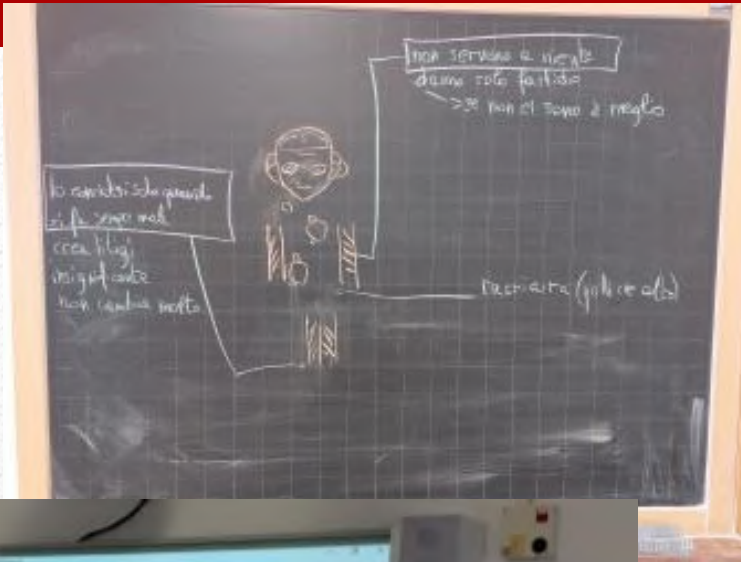 non servono a niente
danno solo fastidio
→ se non ci sono è meglio
lo consideri solo quando
si fa male
crea litigi
insignificante
non cambia molto